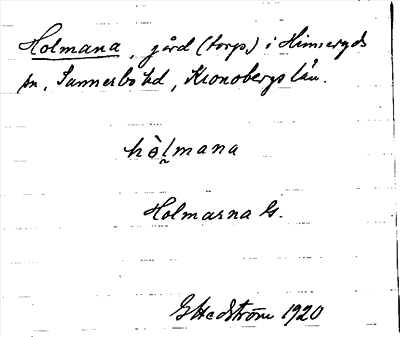 Holmana, gård (torp) i Hinneryds
sn, Sunnerbo hd, Kronobergs län.
hòlmana
Holmarna G.
G Hedström 1920